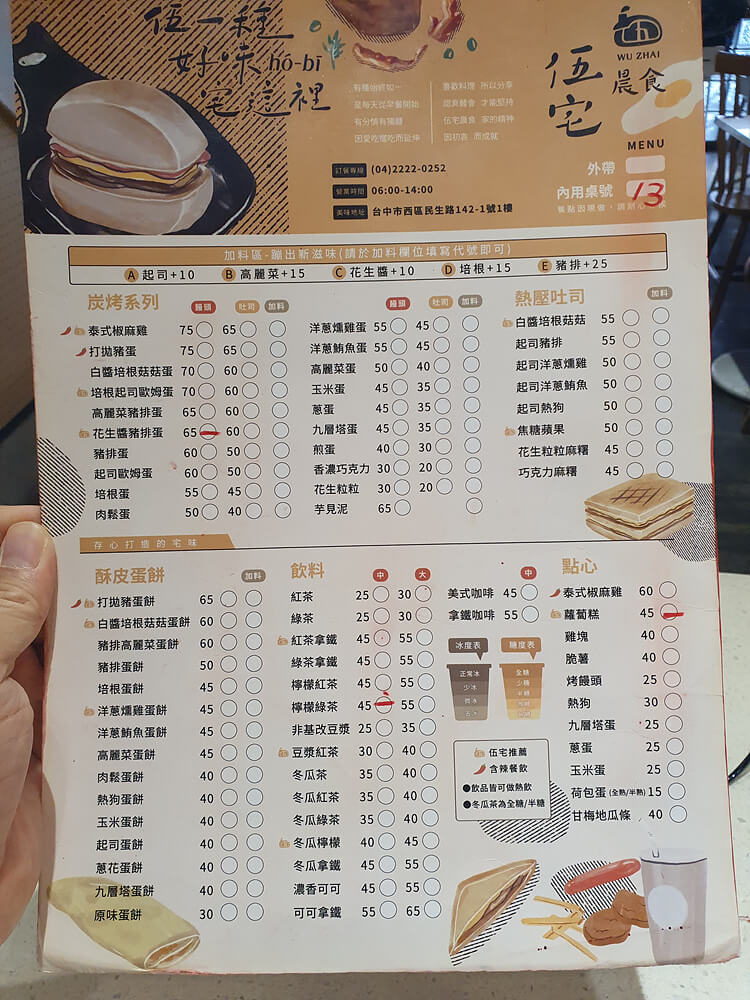 伍一種
好味 hō-bī
宅這裡
有種始終如一
是每天從早餐開始
有分情有獨鍾
因愛吃嚐吃而延伸
喜歡料理 所以分享
認真餐食 才能堅持
伍宅晨食 家的精神
因初衷 而成就
訂餐專線 (04)2222-0252
營業時間 06:00-14:00
美味地址 台中市西區民生路142-1號1樓
伍宅
WU ZHAI
晨食
MENU
外帶
內用桌號 13
加料區-蹦出新滋味(請於加料欄位填寫代號即可)
A 起司+10 B 高麗菜+15 C 花生醬+10 D 培根+15 E 豬排+25
炭烤系列 饅頭 吐司 加料
泰式椒麻雞 75 65
打拋豬蛋 75 65
白醬培根菇菇蛋 70 60
培根起司歐姆蛋 70 60
高麗菜豬排蛋 65 60
花生醬豬排蛋 65 60
豬排蛋 60 50
起司歐姆蛋 60 50
培根蛋 55 45
肉鬆蛋 50 40
饅頭 吐司 加料
洋蔥燻雞蛋 55 45
洋蔥鮪魚蛋 55 45
高麗菜蛋 50 40
玉米蛋 45 35
蔥蛋 45 35
九層塔蛋 45 35
煎蛋 40 30
香濃巧克力 30 20
花生粒粒 30 20
芋見泥 65
熱壓吐司 加料
白醬培根菇菇 55
起司豬排 55
起司洋蔥燻雞 50
起司洋蔥鮪魚 50
起司熱狗 50
焦糖蘋果 50
花生粒粒麻糬 45
巧克力麻糬 45
存心打造的宅味
酥皮蛋餅 加料
打拋豬蛋餅 65
白醬培根菇菇蛋餅 60
豬排高麗菜蛋餅 60
豬排蛋餅 50
培根蛋餅 45
洋蔥燻雞蛋餅 45
洋蔥鮪魚蛋餅 45
高麗菜蛋餅 45
肉鬆蛋餅 40
熱狗蛋餅 40
玉米蛋餅 40
起司蛋餅 40
蔥花蛋餅 40
九層塔蛋餅 40
原味蛋餅 30
飲料 中 大
紅茶 25 30
綠茶 25 30
紅茶拿鐵 45 55
綠茶拿鐵 45 55
檸檬紅茶 45 55
檸檬綠茶 45 55
非基改豆漿 25 35
豆漿紅茶 30 40
冬瓜茶 35 40
冬瓜紅茶 35 40
冬瓜綠茶 35 40
冬瓜檸檬 40 45
冬瓜拿鐵 45 55
濃香可可 45 55
可可拿鐵 55 65
中
美式咖啡 45
拿鐵咖啡 55
冰度表
正常冰
少冰
微冰
去冰
糖度表
全糖
少糖
半糖
微糖
無糖
伍宅推薦
含辣餐飲
●飲品皆可做熱飲
●冬瓜茶為全糖/半糖
點心
泰式椒麻雞 60
蘿蔔糕 45
雞塊 40
脆薯 40
烤饅頭 25
熱狗 30
九層塔蛋 25
蔥蛋 25
玉米蛋 25
荷包蛋 (全熟/半熟) 15
甘梅地瓜條 40